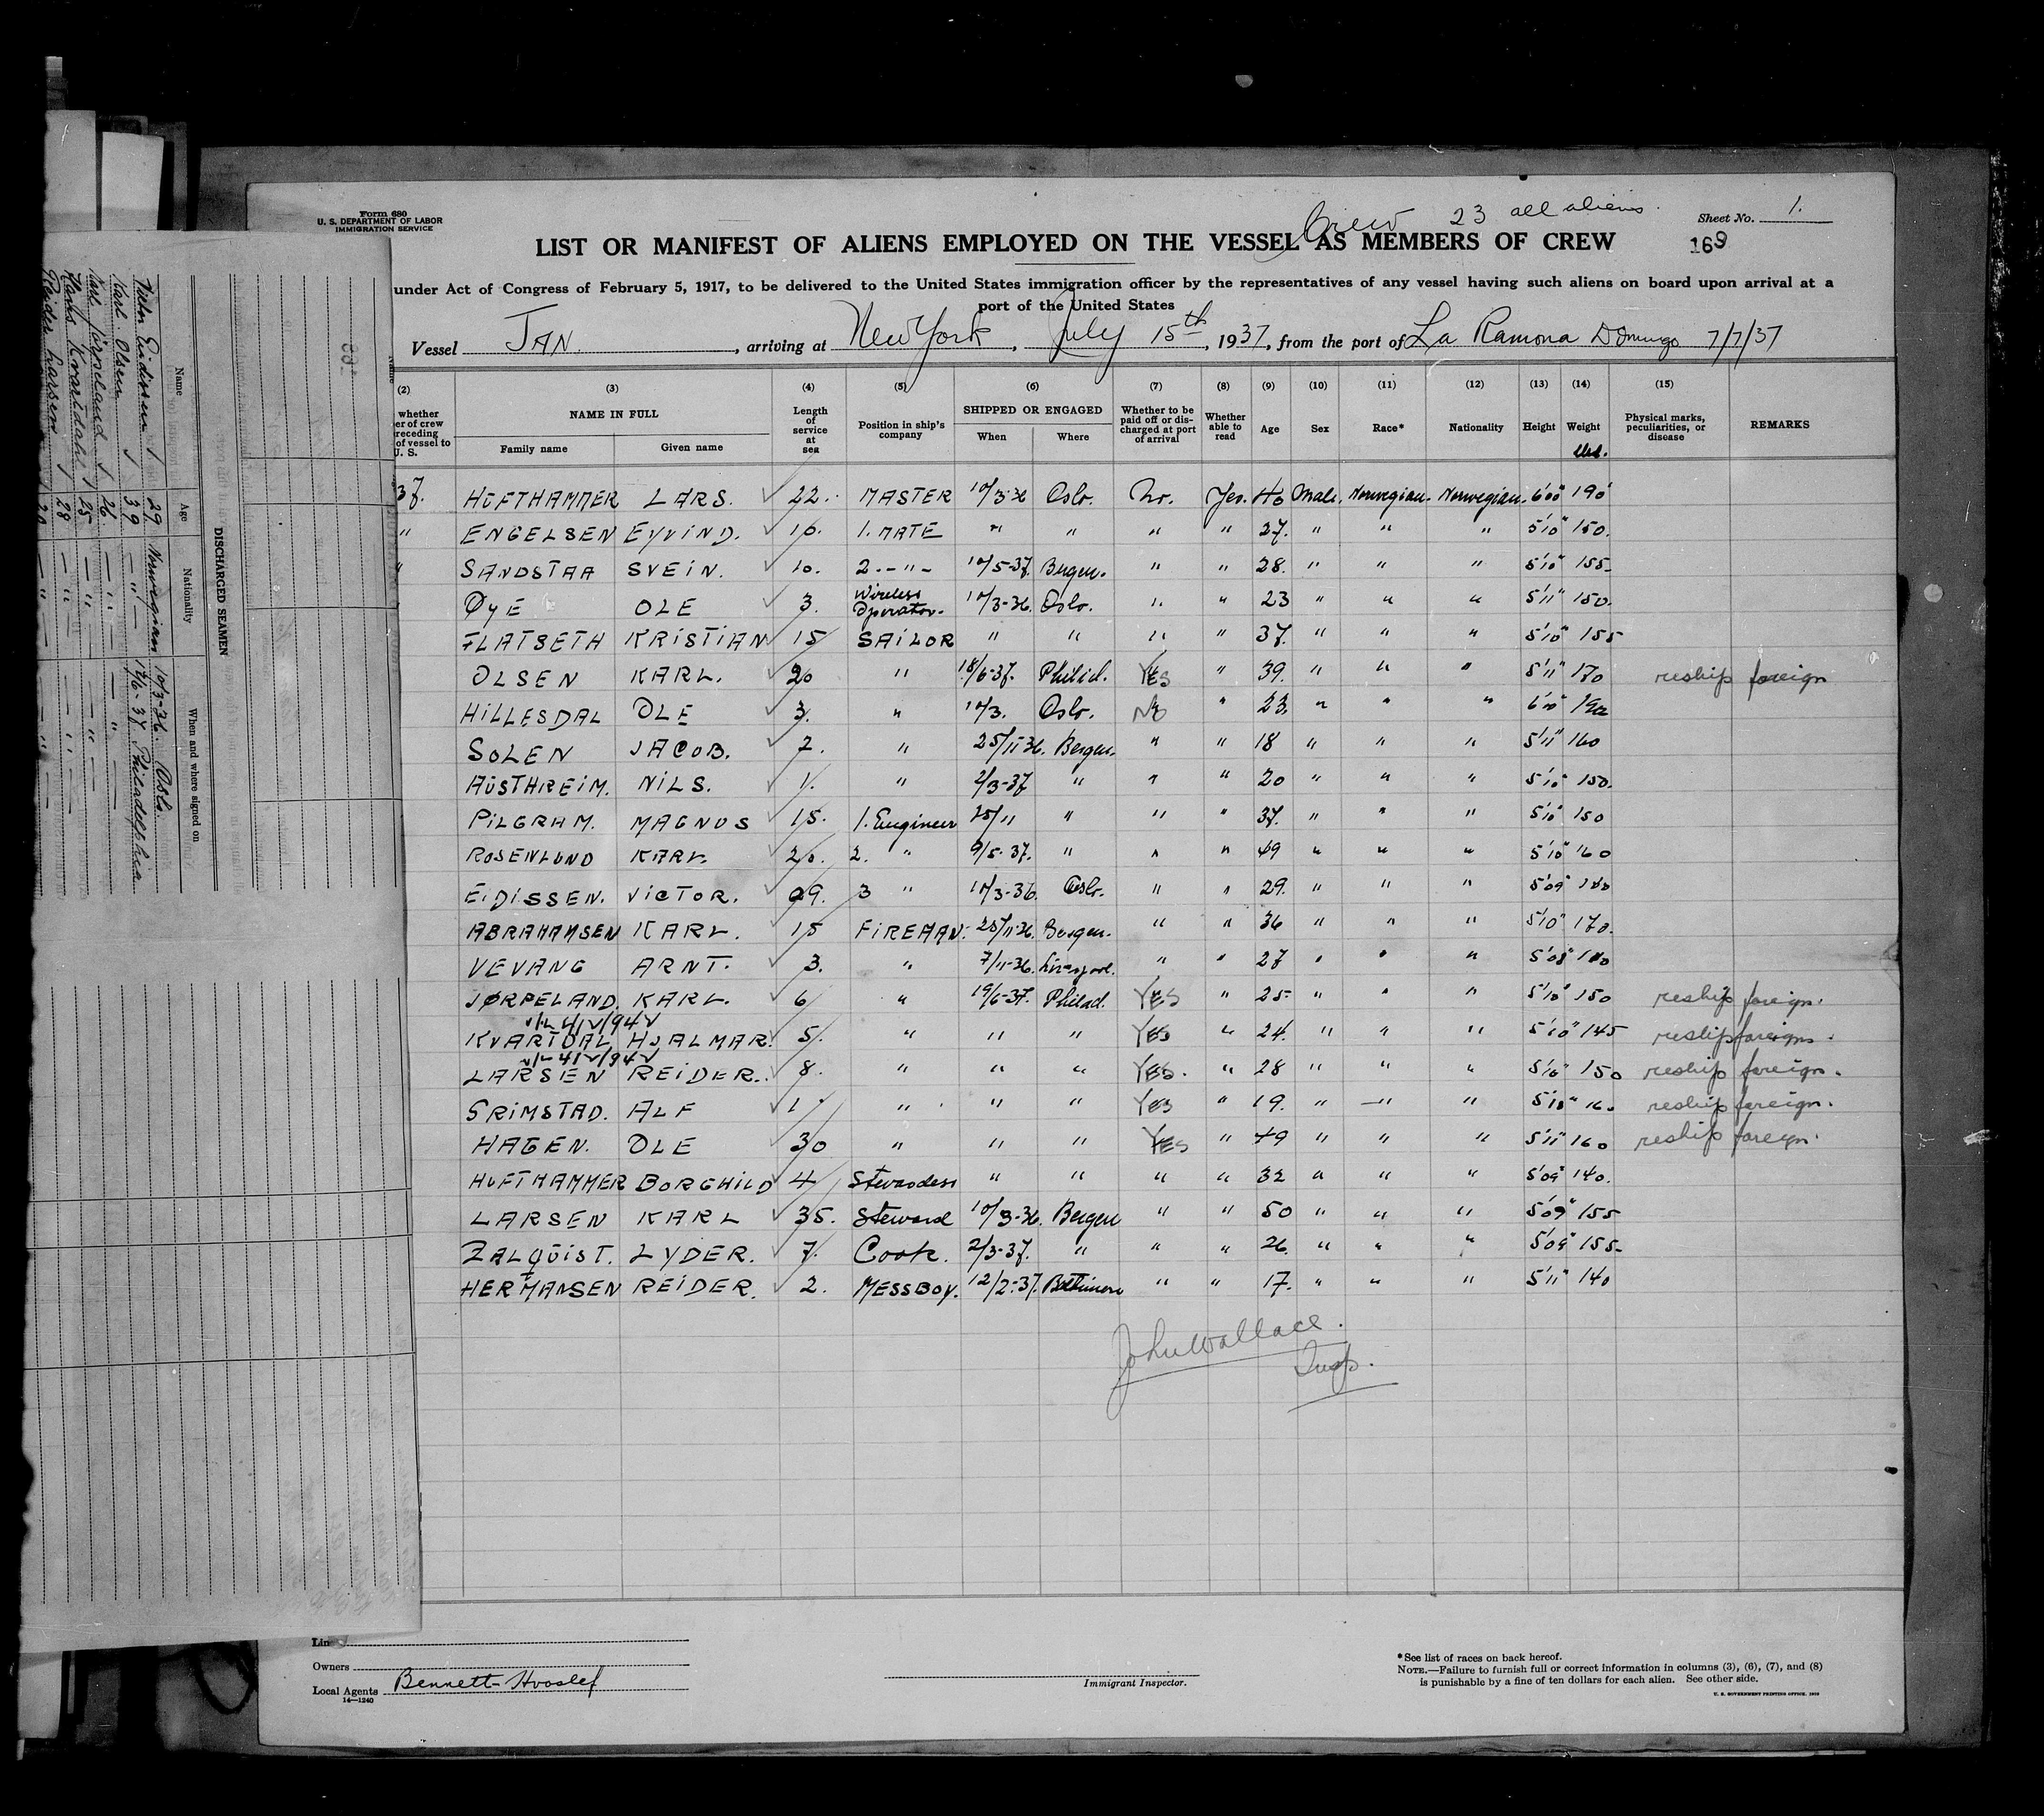 Form 680
U. S. DEPARTMENT OF LABOR
IMMIGRATION SERVICE
Crew 23 all aliens.
Sheet No. 1.
LIST OR MANIFEST OF ALIENS EMPLOYED ON THE VESSEL AS MEMBERS OF CREW
169
under Act of Congress of February 5, 1917, to be delivered to the United States immigration officer by the representatives of any vessel having such aliens on board upon arrival at a
port of the United States
Vessel JAN., arriving at New York, July 15th, 1937, from the port of La Ramona Domingo 7/7/37
(2) (3) (4) (5) (6) (7) (8) (9) (10) (11) (12) (13) (14) (15)
whether
er of crew
receding
of vessel to
U. S.
NAME IN FULL
Family name Given name
Length of service at sea
Position in ship's company
SHIPPED OR ENGAGED
When Where
Whether to be paid off or discharged at port of arrival
Whether able to read
Age Sex Race* Nationality Height Weight
Lbs.
Physical marks, peculiarities, or disease
REMARKS
37. HUFTHAMMER LARS. 22. MASTER 10/3-36 Oslo. No. Yes. 40 Male. Norwegian. Norwegian. 6'00" 190
" ENGELSEN EYVIND. 10. 1. MATE " " " " 27. " " " 5'10" 150.
" SANDSTAA SVEIN. 10. 2.-"- 10/5-37. Bergen. " " 28. " " " 5'10" 155
ØYE OLE 3. Wireless Operator. 10/3-36. Oslo. " " 23 " " " 5'11" 150.
FLATSETH KRISTIAN 15 SAILOR " " " " 37. " " " 5'10" 155
OLSEN KARL. 20 " 18/6-37. Philid. YES " 39. " " " 5'11" 170 reship foreign
HILLESDAL OLE 3. " 10/3. Oslo. NO " 23. " " " 6'00" 190
SOLEN JACOB. 2. " 25/11-36. Bergen. " " 18 " " " 5'11" 160
AUSTHREIM. NILS. 1. " 2/3-37 " " " 20 " " " 5'10" 150.
PILGRAM. MAGNUS 15. 1. Engineer 25/11 " " " 37. " " " 5'10" 150
ROSENLUND KARL. 20. 2. " 9/5-37. " " " 49 " " " 5'10" 160
EIDISSEN. VICTOR. 09. 3 " 10/3-36. Oslo. " " 29. " " " 5'09"
ABRAHAMSEN KARL. 15 FIREMAN. 25/11-36. Bergen. " " 36 " " " 5'10" 170.
VEVANG ARNT. 3. " 7/11-36. Liverpool. " " 27 " " " 5'08"
JØRPELAND. KARL. 6 " 19/6-37. Philad. YES " 25 " " " 5'10" 150 reship foreign.
KVARTDAL HJALMAR. 5. " " " YES " 24. " " " 5'10" 145 reship foreign.
LARSEN REIDER. 8. " " " YES. " 28 " " " 5'10" 150 reship foreign.
GRIMSTAD. ALF 1 " " " YES " 19. " " " 5'10" 160 reship foreign.
HAGEN. OLE 30 " " " YES " 49 " " " 5'11" 160 reship foreign.
HUFTHAMMER BORGHILD 4 Stewardess " " " " 32 " " " 5'09" 140.
LARSEN KARL 35. Steward 10/3-36. Bergen " " 50 " " " 5'09" 155
ZALQUIST. LYDER. 7. Cook. 2/3-37. " " " 26. " " " 5'09" 155
HERMANSEN REIDER. 2. MESSBOY. 12/2-37. Baltimore " " 17. " " " 5'11" 140
John Wallace.
Insp.
Line
Owners
Local Agents Bennett-Hvoslef
14—1240
Immigrant Inspector.
*See list of races on back hereof.
NOTE.—Failure to furnish full or correct information in columns (3), (6), (7), and (8)
is punishable by a fine of ten dollars for each alien. See other side.
U. S. GOVERNMENT PRINTING OFFICE
DISCHARGED SEAMEN
Name Age Nationality When and where signed on
Eidissen 29 Norwegian 10/3-36. Oslo.
Karl Olsen 39 —"— 18/6-37 Philadelphia
Karl Jørpeland 26 —"— —"—
Kvartdahl 25 —"— —"—
Reider Larsen 28 —"— —"—